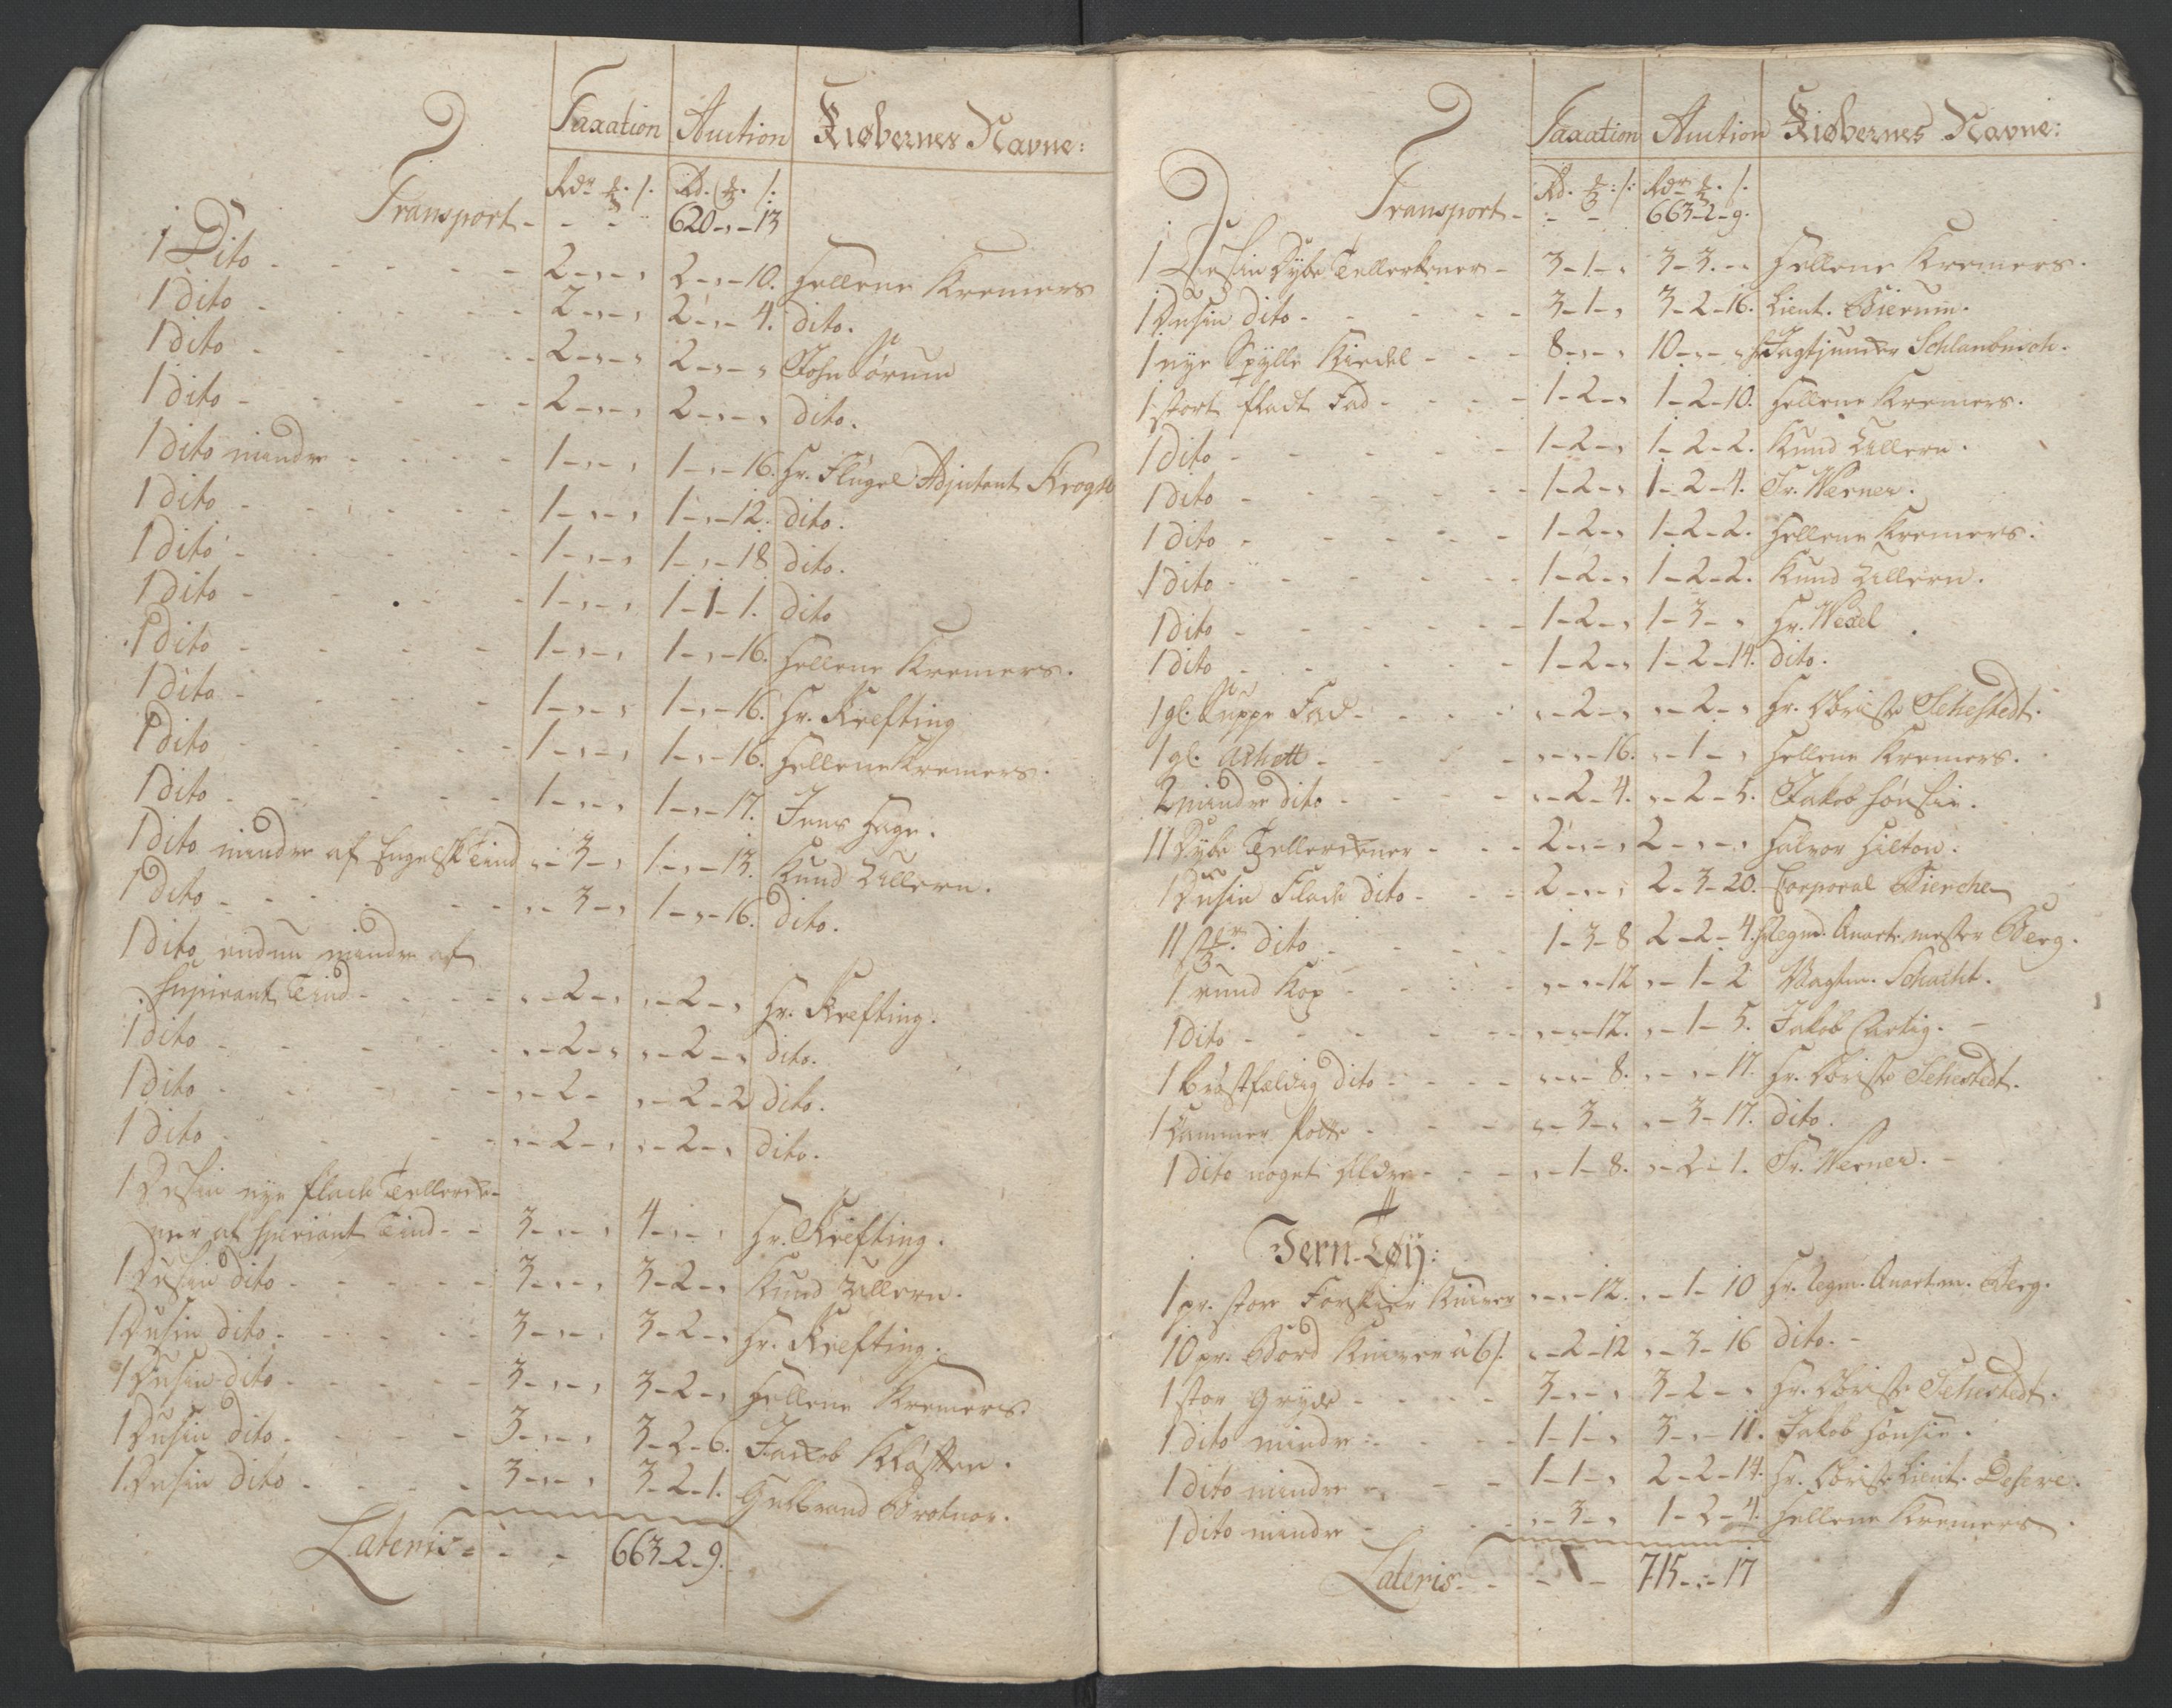 Taxation Auction Kiøbernes Navne:
Rdr. ort. s. Rd. ort. s.
Transport - - - 620-"-13
1 Dito - - - 2-"-" 2-"-10. Hellene Kremers
1 dito - - - 2-"-" 2-"-4. dito.
1 dito - - - 2-"-" 2-"-" John Sørum
1 dito - - - 2-"-" 2-"-" dito.
1 dito mindre - - - 1-"-" 1-"-16. Hr. Flügel Adjutant Krogh
1 dito - - - 1-"-" 1-"-12. dito.
1 dito - - - 1-"-" 1-"-18 dito.
1 dito - - - 1-"-" 1-1-1. dito
1 dito - - - 1-"-" 1-"-16. Hellene Kremers.
1 dito - - - 1-"-" 1-"-16. Hr. Krefting
1 dito - - - 1-"-" 1-"-16. Hellene Kremers.
1 dito - - - 1-"-" 1-"-17. Jens Hage.
1 dito mindre af Engelsk Tind "-3-" 1-"-13. Knud Ullern.
1 dito - - - "-3-" 1-"-16. dito.
1 dito endnu mindre af
Tind - - - "-2-" "-2-" Hr. Krefting.
1 dito - - - "-2-" "-2-" dito.
1 dito - - - "-2- "-2-2 dito.
1 dito - - - "-2-" "-2-" dito.
1 Dusin nye flade Tellerke-
ner af Tind - - 3-"-" 4-"-" Hr. Krefting.
1 Dusin dito - - - 3-"-" 3-2-" Knud Ullern.
1 Dusin dito - - - 3-"-" 3-2-" Hr. Krefting.
1 Dusin dito - - - 3-"-" 3-2-" Hellene Kremers.
1 Dusin dito - - - 3-"-" 3-2-6. Jacob Kløften.
1 Dusin dito - - - 3-"-" 3-2-1. Gulbrand Brotnor.
Lateris - - - 663-2-9.
Taxation Auction Kiøbernes Navne:
Rd. ort. s: Rdr. ort. s.
Transport - - - 663-2-9.
1 Dusin Dybe Tellerkener - 3-1-" 3-3-" Hellene Kremers.
1 Dusin dito - - - 3-1-" 3-2-16. Lieut. Bierum.
1 nye Spylle Kiedel - - - 8-"-" 10-"-" Hr. Jagtjunker Schlanbusch.
1 stort fladt Fad - - - 1-2-" 1-2-10. Hellene Kremers.
1 dito - - - 1-2-" 1-2-2. Knud Ullern.
1 dito - - - 1-2-" 1-2-4. Fr. Werner.
1 dito - - - 1-2-" 1-2-2. Hellene Kremers.
1 dito - - - 1-2-" 1-2-2. Knud Ullern.
1 dito - - - 1-2-" 1-3-" Hr. Wedel
1 dito - - - 1-2-" 1-2-14. dito.
1 gl. Suppe Fad - - - "-2-" "-2-" Hr. Obriste Sehestedt.
1 gl. Achett - - - "-"-16. "-1-" Hellene Kremers.
2 mindre dito - - - "-2-4. "-2-5. Jakob Hønsie.
11 Dybe Tellerkener - - - 2-"-" 2-"-" Halvor Hilton.
1 Dusin Flade dito - - - 2-"-" 2-3-20. Corporal Bierche
11 st. dito - - - 1-3-8 2-2-4. Hr. Regmt. Quarteermester Berg.
1 rund Kop - - - "-"-12 "-1-2 Vagtm. Schacht.
1 dito - - - "-"-12. "-1-5. Jakob Artig.
1 brøstfældig dito - - - "-"-8. "-"-17. Hr. Obriste Sehestedt.
1 Kammer Potte - - - "-3-" "-3-17. dito.
1 dito noget ældre - - - "-1-8. "-2-1. Fr. Werner.
Jern-Tøij:
1 pr. store Forskier Kniver "-"-12. "-1-10 Hr. Regm. Quartm. Berg.
10 pr. Bord Kniver à 6 s. "-2-12 "-3-16 dito.
1 stor Gryde - - - 3-"-" 3-2-" Hr. Obriste Sehestedt.
1 dito mindre - - - 1-1-" 3-"-11. Jakob Hønsie.
1 dito mindre - - - 1-1-" 2-2-14. Hr. Obriste Lieut. Desere.
1 dito mindre - - - "-3-" 1-2-4. Hellene Kremers.
Lateris - - - 715-"-17